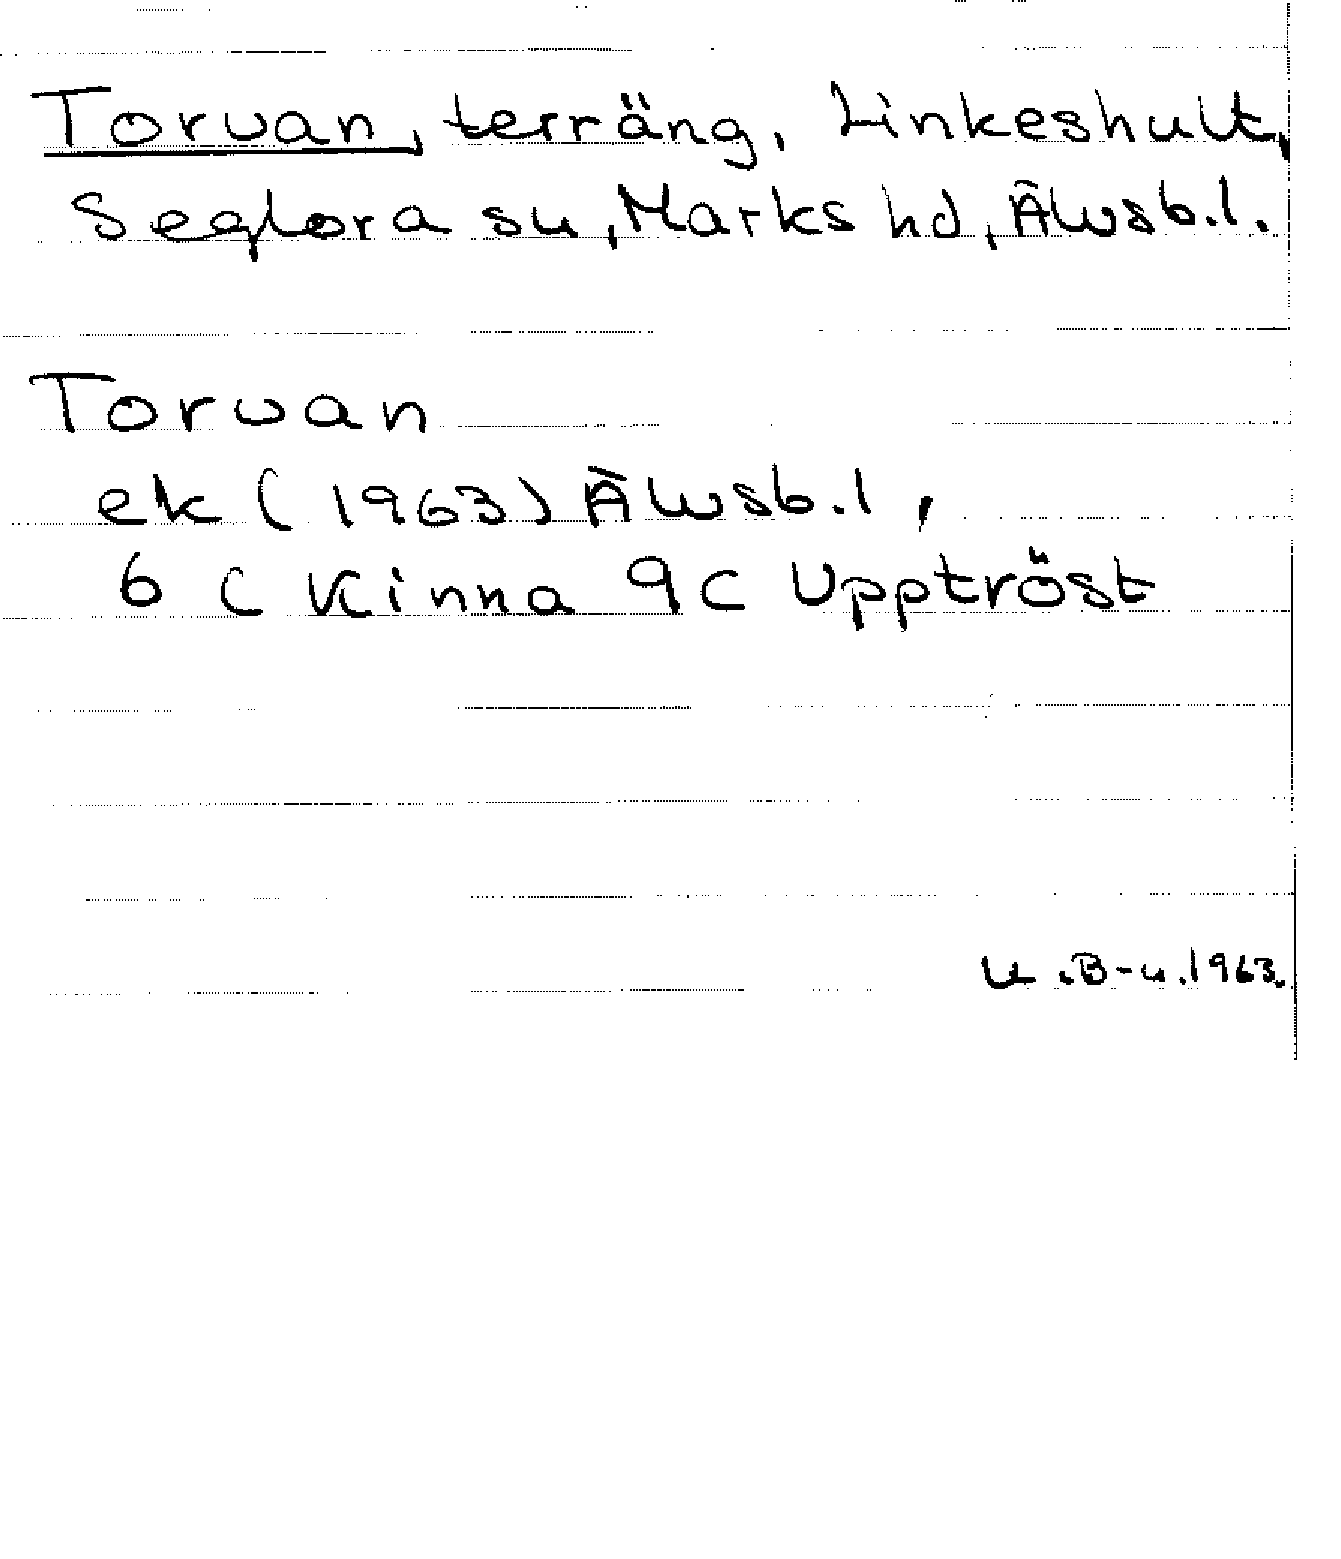 Torvan, terräng, Linkeshult,
Seglora sn, Marks hd, Älvsb.l.
Torvan
ek (1963) Älvsb.l,
6 C Kinna 9c Upptröst
U.B-n.1963.